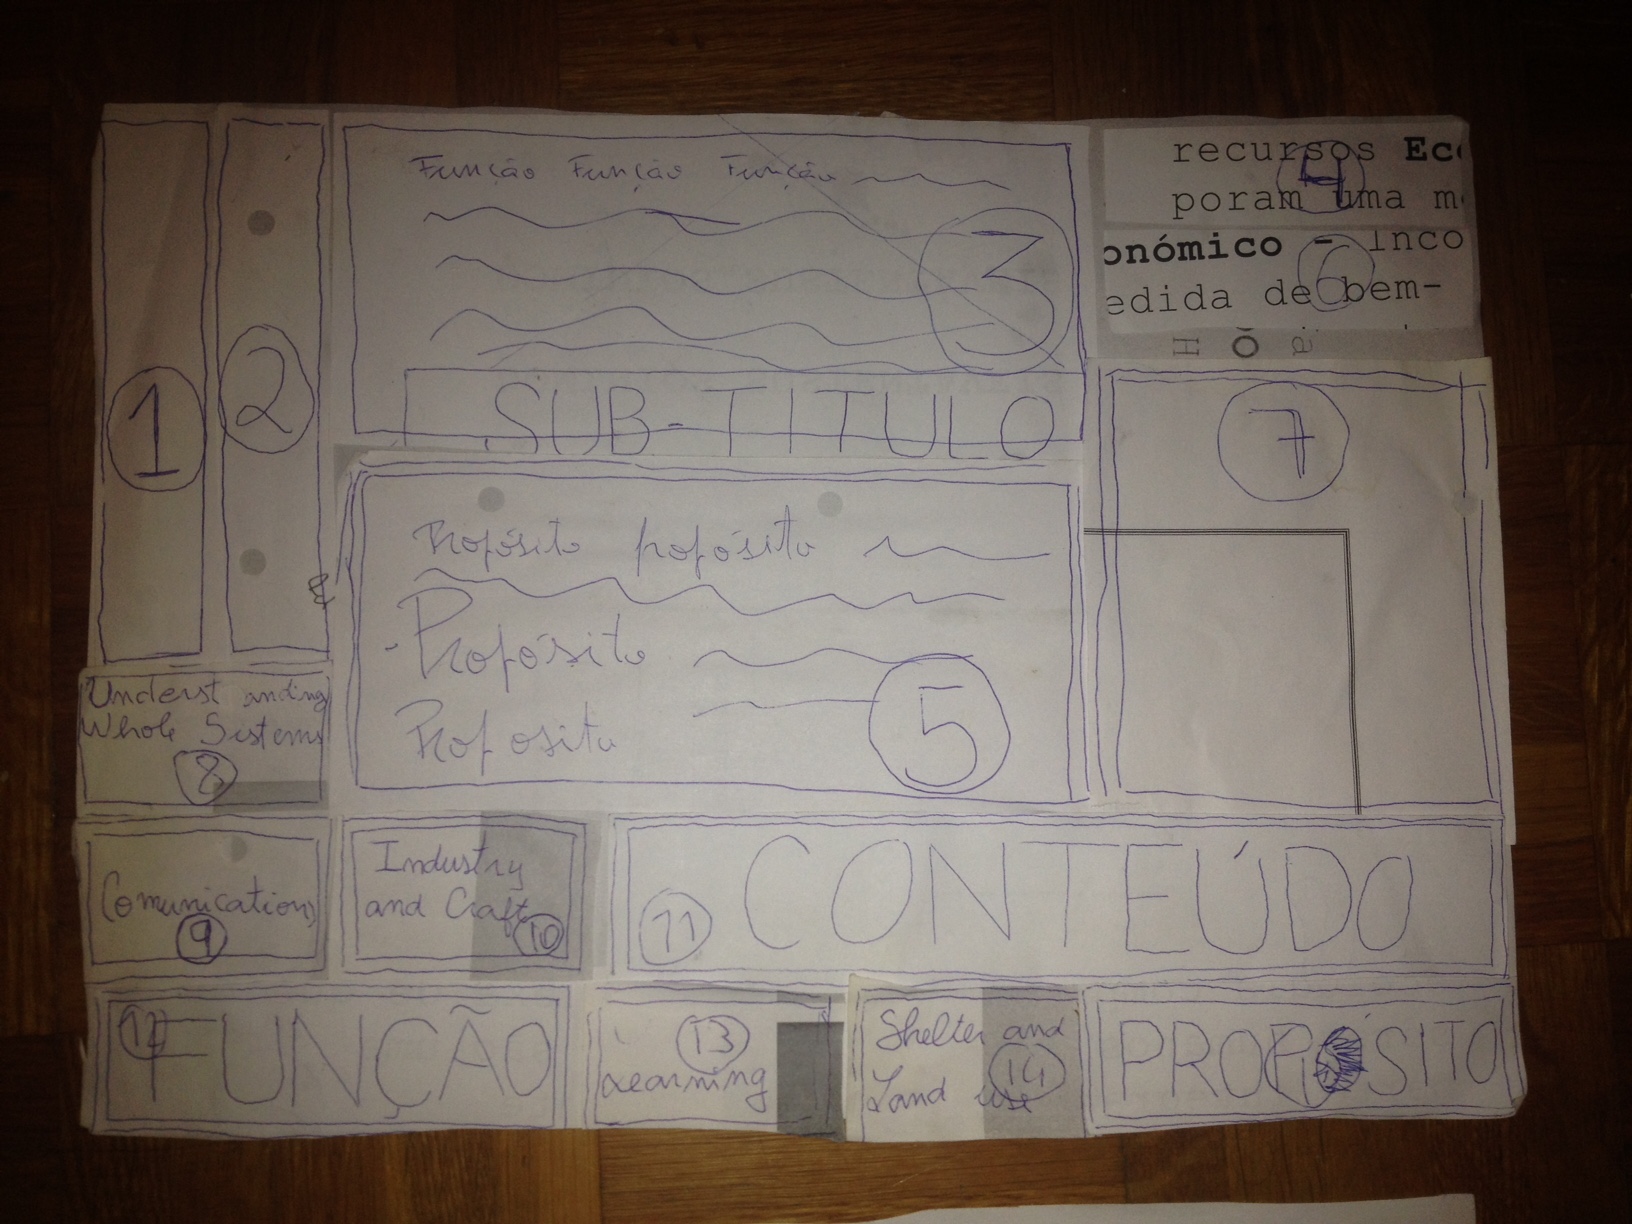 1
2
Função Função Função
3
SUB-TITULO
recursos Ec
4
poram uma m
onómico - inco
6
edida de bem-
7
Propósito propósito
- Propósito
Proposito
5
Understanding
Whole Sistems
8
Comunications
9
Industry
and Craft
10
11
CONTEÚDO
12
FUNÇÃO
13
Learning
Shelter and
14
Land use
PROPÓSITO